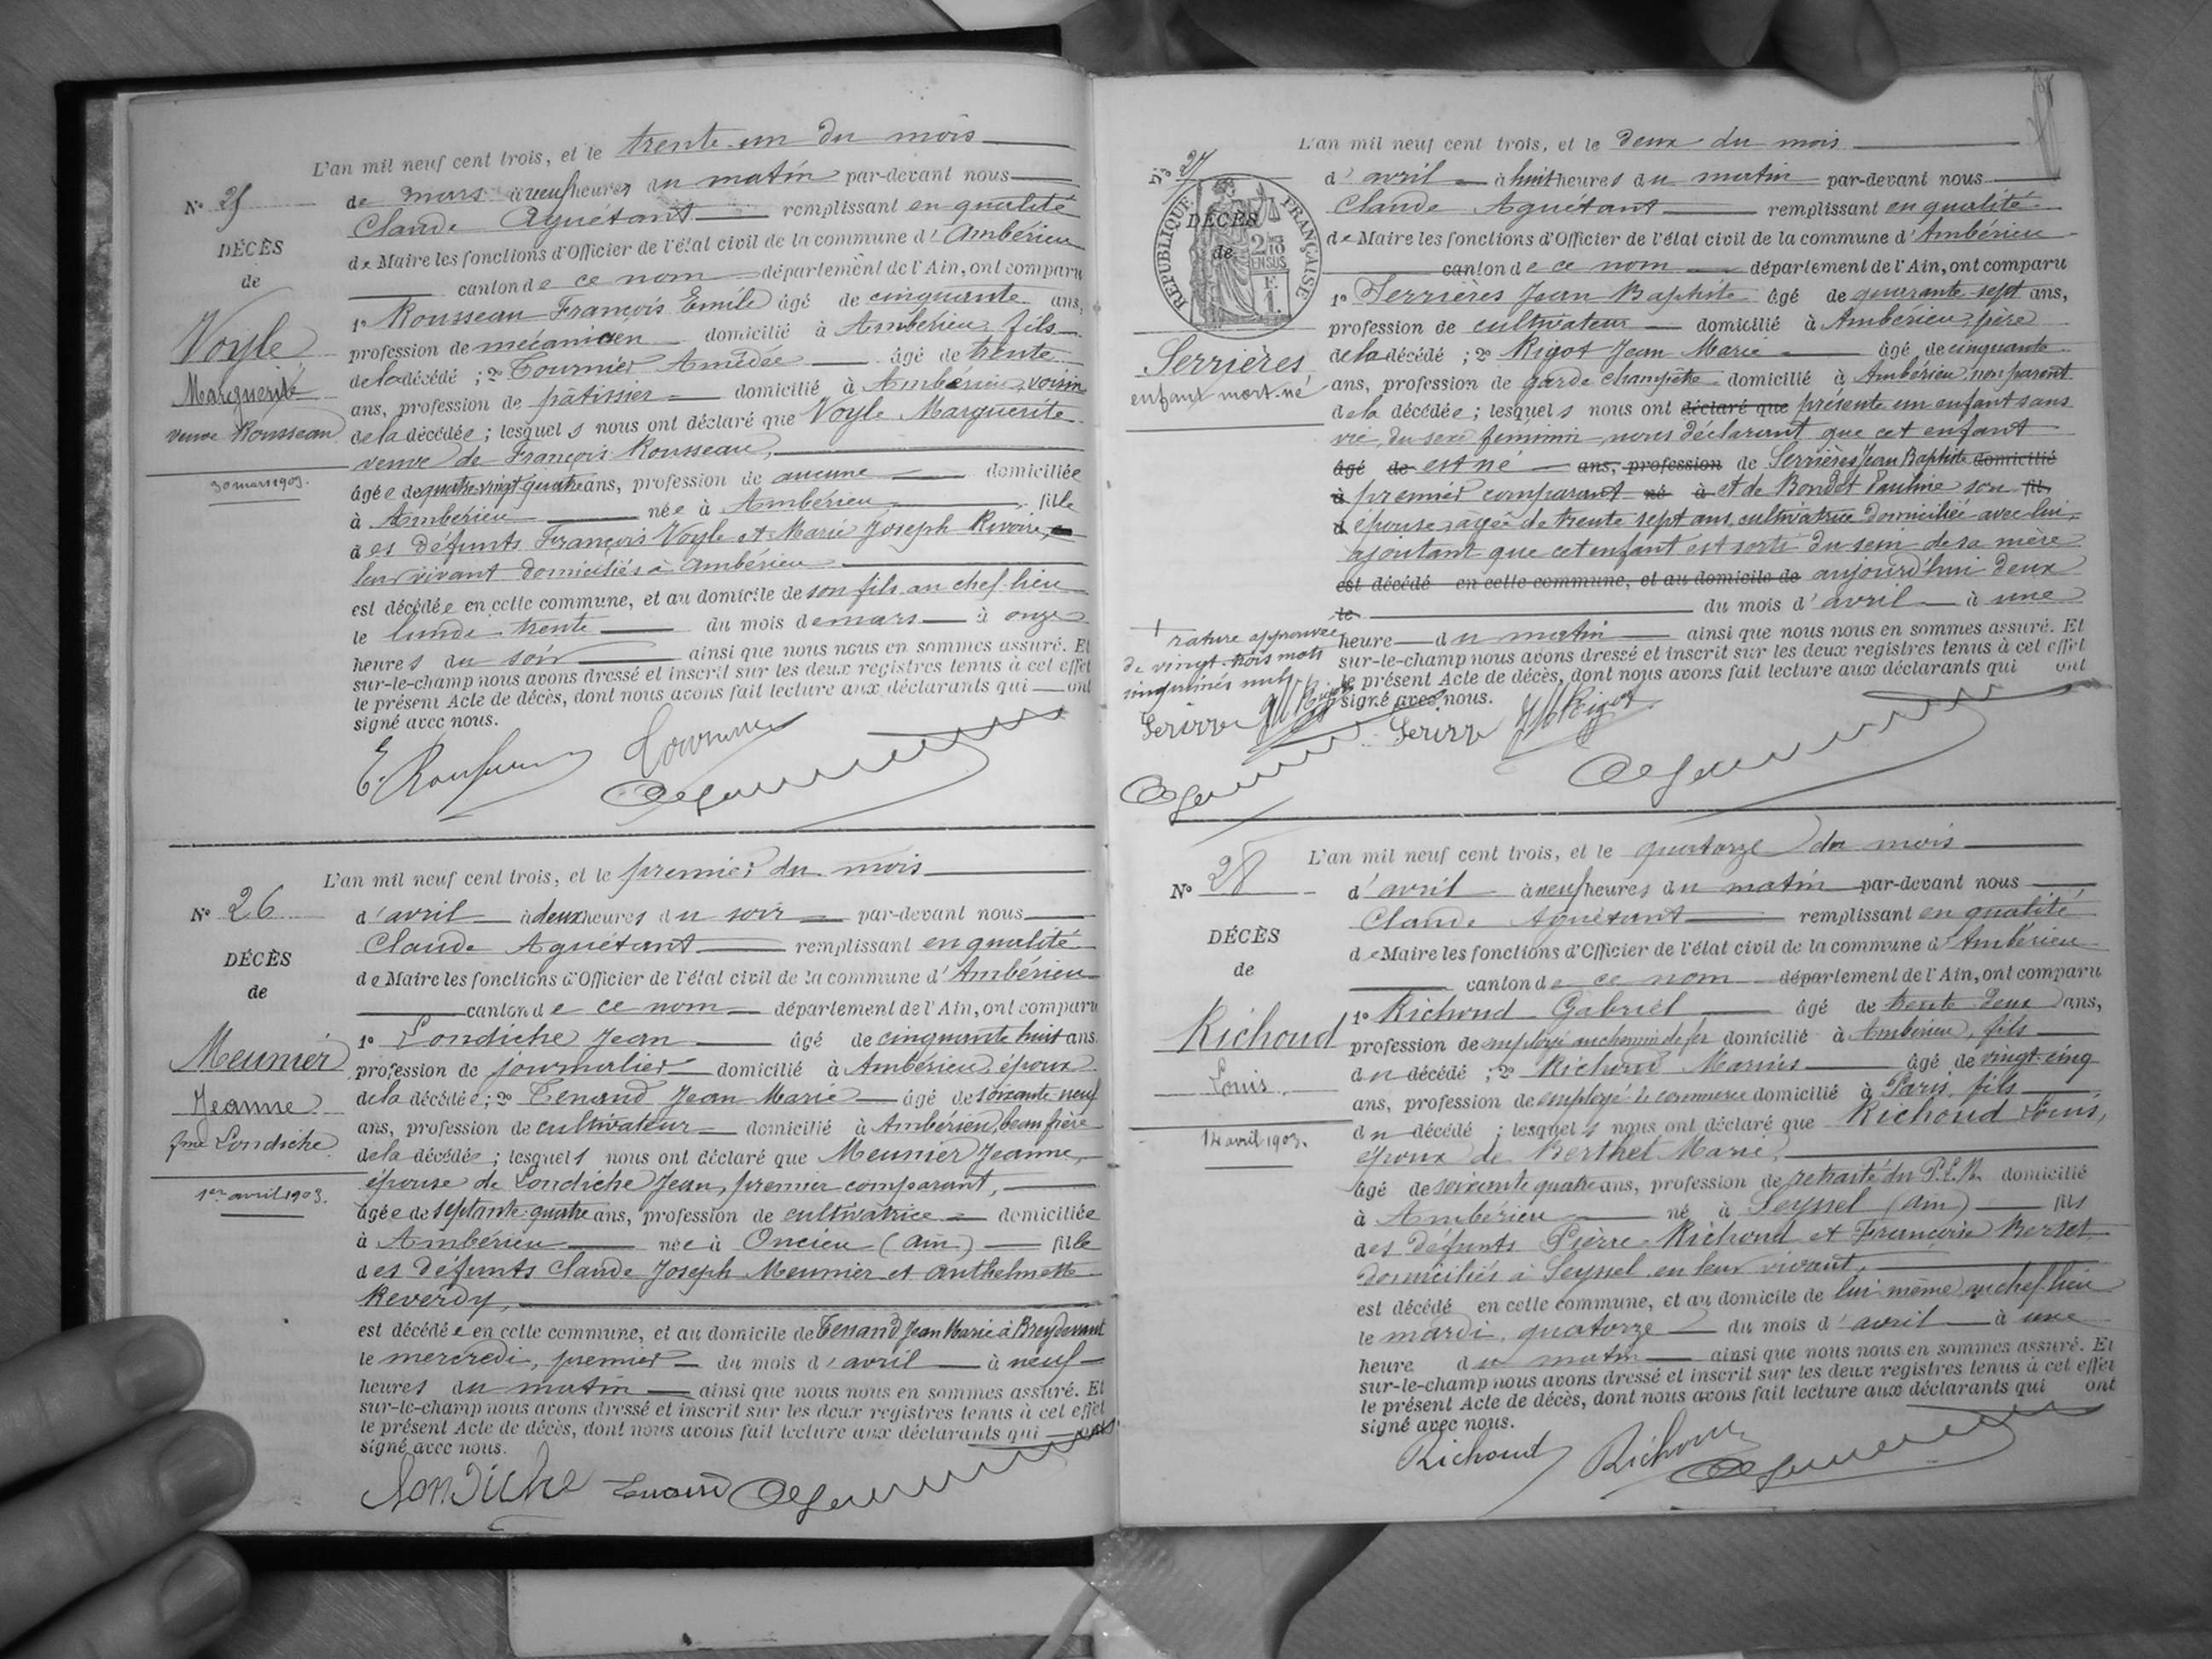 L'an mil neuf cent trois, et le trente-un du mois
N° 25
de mars à neuf heures du matin par-devant nous
Claude Aguétant remplissant en qualité
DÉCÈS
de Maire les fonctions d'Officier de l'état civil de la commune d'Ambérieu
de
canton de ce nom département de l'Ain, ont comparu
1° Rousseau François Emile âgé de cinquante ans,
Voyle
profession de mécanicien domicilié à Ambérieu, fils
Marguerite
de la décédé ; 2° Tournier Amédée âgé de trente
ans, profession de pâtissier domicilié à Ambérieu, voisin
veuve Rousseau
de la décédée ; lesquels nous ont déclaré que Voyle Marguerite
veuve de François Rousseau,
30 mars 1903.
âgée de quatre-vingt quatre ans, profession de aucune domiciliée
à Ambérieu née à Ambérieu fille
des défunts François Voyle et Marie Joseph Revoire,
leur vivant domiciliés à Ambérieu
est décédée en cette commune, et au domicile de son fils au chef-lieu
le lundi trente du mois de mars à onze
heures du soir ainsi que nous nous en sommes assuré. Et
sur-le-champ nous avons dressé et inscrit sur les deux registres tenus à cet effet
le présent Acte de décès, dont nous avons fait lecture aux déclarants qui ont
signé avec nous.
E. Rousseau
L'an mil neuf cent trois, et le premier du mois
N° 26
d'avril à deux heures du soir par-devant nous
Claude Aguétant remplissant en qualité
DÉCÈS
de Maire les fonctions d'Officier de l'état civil de la commune d'Ambérieu
de
canton de ce nom département de l'Ain, ont comparu
1° Londiche Jean âgé de cinquante huit ans
Meunier
profession de journalier domicilié à Ambérieu, époux
Jeanne
de la décédée ; 2° Tenand Jean Marie âgé de soixante neuf
ans, profession de cultivateur domicilié à Ambérieu, beau frère
fme Londiche
de la décédée ; lesquels nous ont déclaré que Meunier Jeanne,
1er avril 1903.
épouse de Londiche Jean, premier comparant,
âgée de septante-quatre ans, profession de cultivatrice domiciliée
à Ambérieu née à Oncieu (Ain) fille
des défunts Claude Joseph Meunier et Anthelmette
Reverdy,
est décédée en cette commune, et au domicile de Tenand Jean Marie à Breydevant
le mercredi, premier du mois d'avril à neuf
heures du matin ainsi que nous nous en sommes assuré. Et
sur-le-champ nous avons dressé et inscrit sur les deux registres tenus à cet effet
le présent Acte de décès, dont nous avons fait lecture aux déclarants qui ont
signé avec nous.
Londiche Tenand
L'an mil neuf cent trois, et le deux du mois
N° 27
d'avril à huit heures du matin par-devant nous
RÉPUBLIQUE FRANÇAISE
Claude Aguétant remplissant en qualité
DÉCÈS
de Maire les fonctions d'Officier de l'état civil de la commune d'Ambérieu
de
canton de ce nom département de l'Ain, ont comparu
1° Serrières Jean Baptiste âgé de quarante-sept ans,
profession de cultivateur domicilié à Ambérieu, père
Serrières
de la décédé ; 2° Rigot Jean Marie âgé de cinquante
enfant mort-né
ans, profession de garde champêtre domicilié à Ambérieu, non parent
de la décédée ; lesquels nous ont déclaré que présenté un enfant sans
vie, du sexe féminin nous déclarant que cet enfant
âgé de est né ans, profession de Serrières Jean Baptiste domicilié
à premier comparant né à et de Bondet Pauline son fil
d épouse, âgée de trente sept ans, cultivatrice domiciliée avec lui,
ajoutant que cet enfant est sorti du sein de sa mère
est décédé en cette commune, et au domicile de aujourd'hui deux
le du mois d'avril à une
rature approuvée
heure du matin ainsi que nous nous en sommes assuré. Et
de vingt-trois mots
sur-le-champ nous avons dressé et inscrit sur les deux registres tenus à cet effet
imprimés nuls
le présent Acte de décès, dont nous avons fait lecture aux déclarants qui ont
signé avec nous.
L'an mil neuf cent trois, et le quatorze du mois
N° 28
d'avril à neuf heures du matin par-devant nous
Claude Aguétant remplissant en qualité
DÉCÈS
de Maire les fonctions d'Officier de l'état civil de la commune d'Ambérieu
de
canton de ce nom département de l'Ain, ont comparu
1° Richoud Gabriel âgé de trente deux ans,
Richoud
profession de employé au chemin de fer domicilié à Ambérieu, fils
Louis
du décédé ; 2° Richoud Marius âgé de vingt-cinq
ans, profession de employé de commerce domicilié à Paris, fils
14 avril 1903.
du décédé ; lesquels nous ont déclaré que Richoud Louis,
époux de Berthet Marie,
âgé de soixante quatre ans, profession de retraité du P.L.M. domicilié
à Ambérieu né à Seyssel (Ain) fils
des défunts Pierre Richoud et Françoise Berset
domiciliés à Seyssel en leur vivant,
est décédé en cette commune, et au domicile de lui même au chef-lieu
le mardi, quatorze du mois d'avril à une
heure du matin ainsi que nous nous en sommes assuré. Et
sur-le-champ nous avons dressé et inscrit sur les deux registres tenus à cet effet
le présent Acte de décès, dont nous avons fait lecture aux déclarants qui ont
signé avec nous.
Richoud Richoud